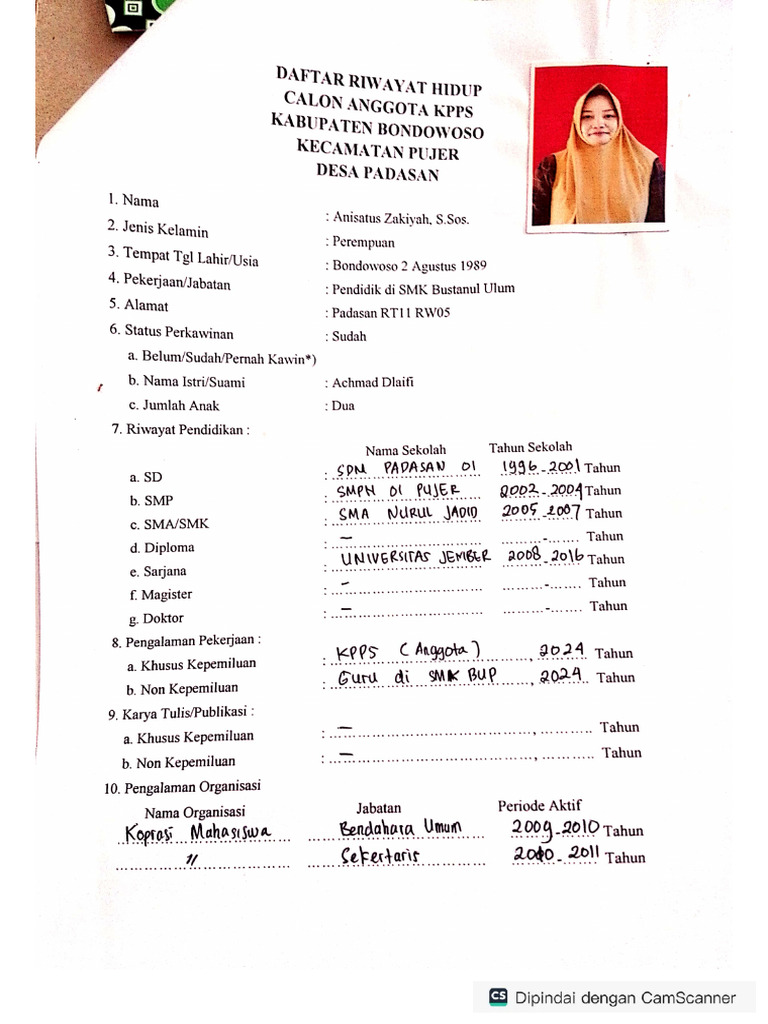 DAFTAR RIWAYAT HIDUP
CALON ANGGOTA KPPS
KABUPATEN BONDOWOSO
KECAMATAN PUJER
DESA PADASAN
1. Nama : Anisatus Zakiyah, S.Sos.
2. Jenis Kelamin : Perempuan
3. Tempat Tgl Lahir/Usia : Bondowoso 2 Agustus 1989
4. Pekerjaan/Jabatan : Pendidik di SMK Bustanul Ulum
5. Alamat : Padasan RT11 RW05
6. Status Perkawinan : Sudah
a. Belum/Sudah/Pernah Kawin*)
b. Nama Istri/Suami : Achmad Dlaifi
c. Jumlah Anak : Dua
7. Riwayat Pendidikan :
Nama Sekolah Tahun Sekolah
a. SD : SDN PADASAN 01 1996-2001 Tahun
b. SMP : SMPN 01 PUJER 2002-2004 Tahun
c. SMA/SMK : SMA NURUL JADID 2005-2007 Tahun
d. Diploma : – .........-....... Tahun
e. Sarjana : UNIVERSITAS JEMBER 2008-2016 Tahun
f. Magister : – .........-....... Tahun
g. Doktor : – .........-....... Tahun
8. Pengalaman Pekerjaan :
a. Khusus Kepemiluan : KPPS (Anggota), 2024 Tahun
b. Non Kepemiluan : Guru di SMK BUP, 2024 Tahun
9. Karya Tulis/Publikasi :
a. Khusus Kepemiluan : – , ........... Tahun
b. Non Kepemiluan : – , ........... Tahun
10. Pengalaman Organisasi
Nama Organisasi Jabatan Periode Aktif
Koprasi Mahasiswa Bendahara Umum 2009-2010 Tahun
〃 Sekertaris 2010-2011 Tahun
CS Dipindai dengan CamScanner